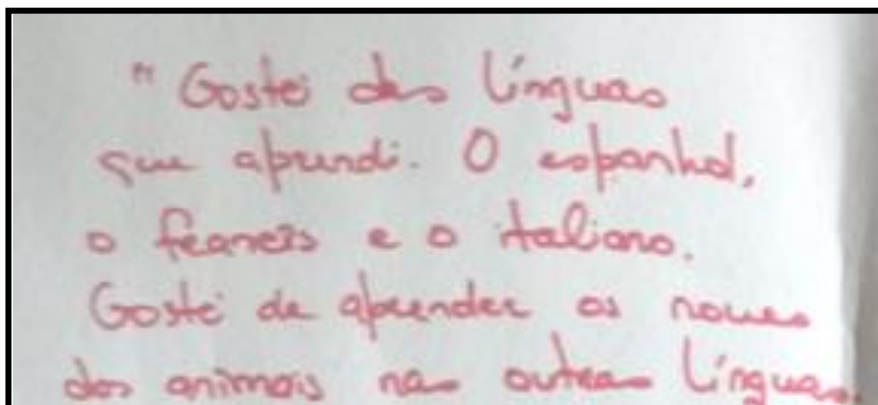 " Gostei das línguas
que aprendi. O espanhol,
o francês e o italiano.
Gostei de aprender os nomes
dos animais nas outras línguas.